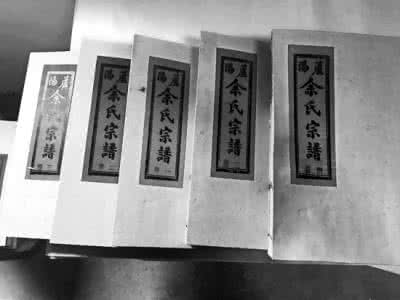 蘆陽
余氏宗譜
蘆陽
余氏宗譜
蘆陽
余氏宗譜
蘆陽
余氏宗譜
蘆陽
余氏宗譜